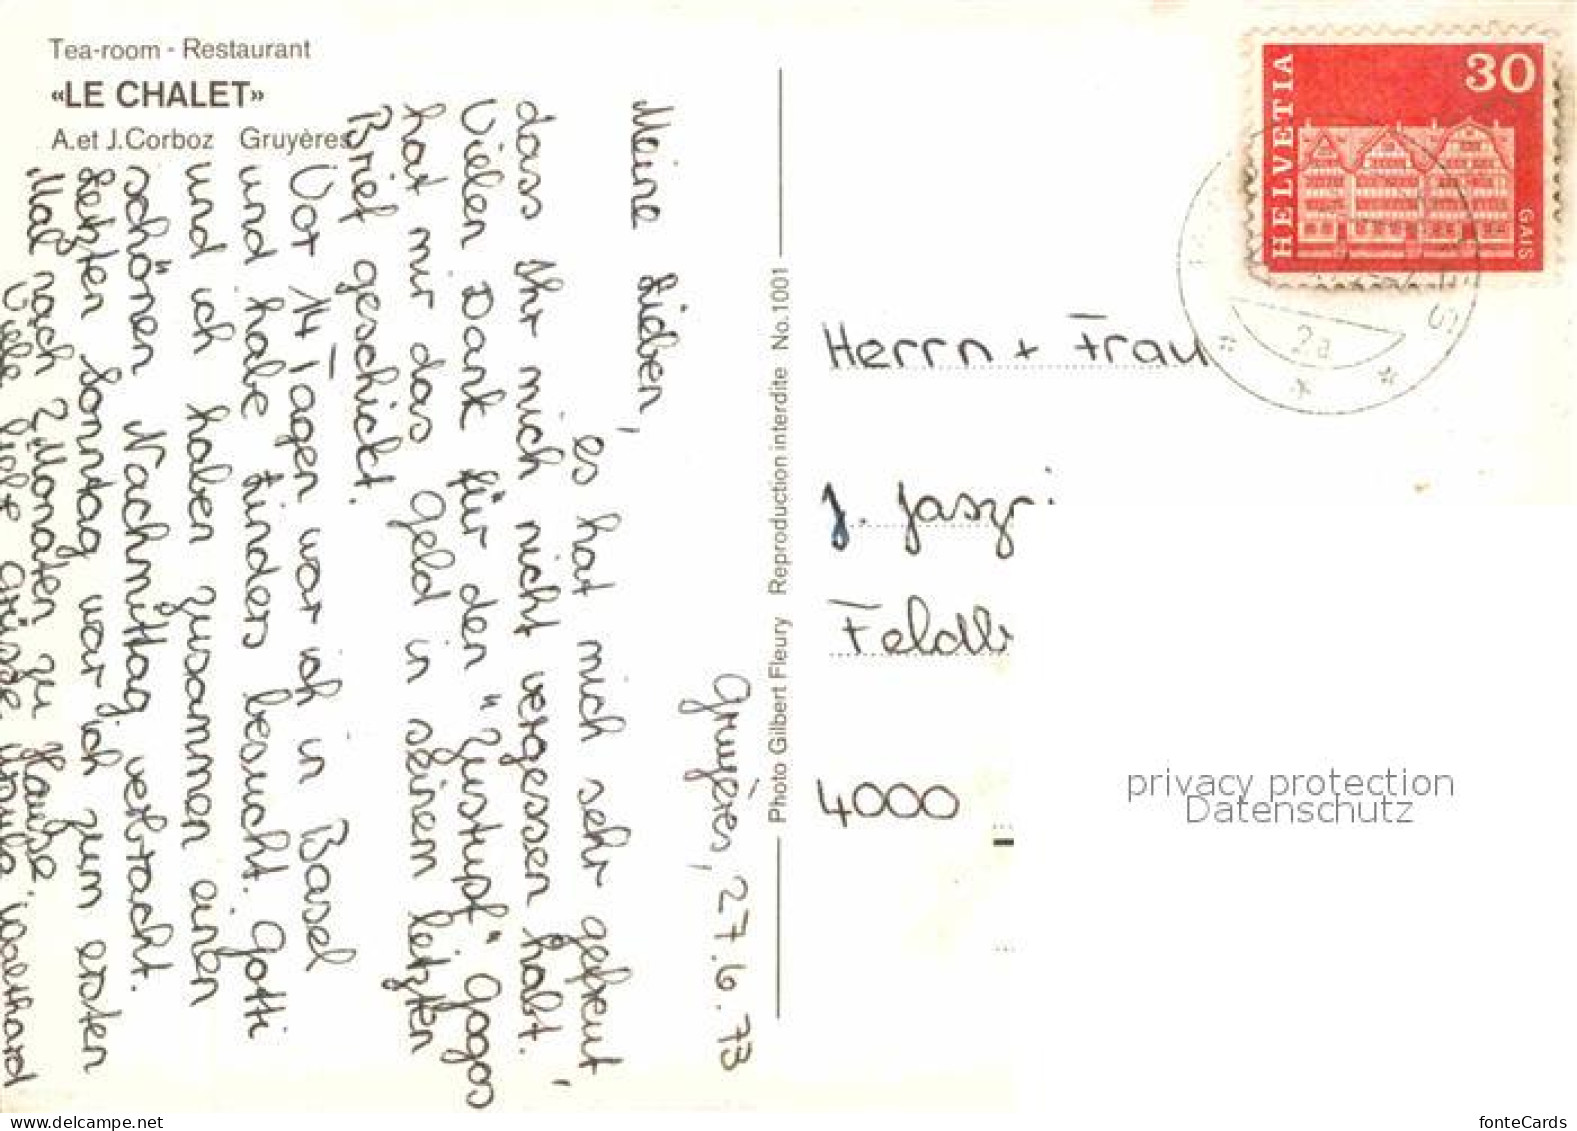 Tea-room - Restaurant
«LE CHALET»
A.et J.Corboz Gruyères
Gruyères, 27.6.73
Meine Lieben,
es hat mich sehr gefreut,
dass Ihr mich nicht vergessen habt.
Vielen Dank für den "Zustupf" Gogos
hat mir das Geld in seinem letzten
Brief geschickt.
Vor 14 Tagen war ich in Basel
und habe Kinders besucht. Gotti
und ich haben zusammen einen
schönen Nachmittag verbracht.
Letzten Sonntag war ich zum ersten
Mal nach 2 Monaten zu Hause.
Viele liebe Grüsse Ursula Walthard
Photo Gilbert Fleury Reproduction interdite No. 1001
HELVETIA
30
GAIS
2a
Herrn + Frau
J. Jaszr
Feldb
4000
privacy protection
Datenschutz
www.delcampe.net
fonteCards